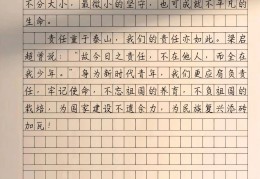 不分大小，最微小的坚守，也可成就不平凡的
生命。
责任重于泰山，我们的责任亦如此。梁启
超曾说：“故今日之责任，不在他人，而全在
我少年。”身为新时代青年，我们更应肩负责
任，牢记使命，不忘祖国的养育，不负祖国的
栽培，为国家建设不遗余力，为民族复兴添砖
加瓦！